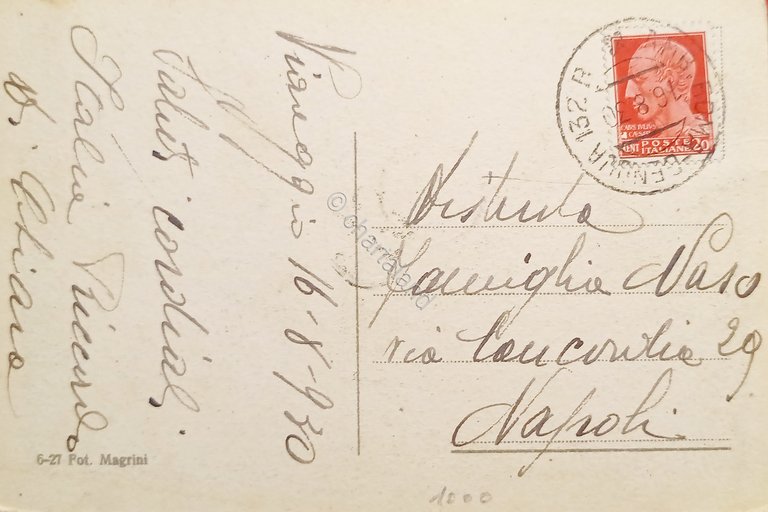 Viareggio 16-8-930
Saluti cordiali
Italia
di Chiara
Distinta
Famiglia Naso
via Concordia 29
Napoli
POSTE
ITALIANE
CENT 20
16 8 30
6-27 Fot. Magrini
1000
© chartaland